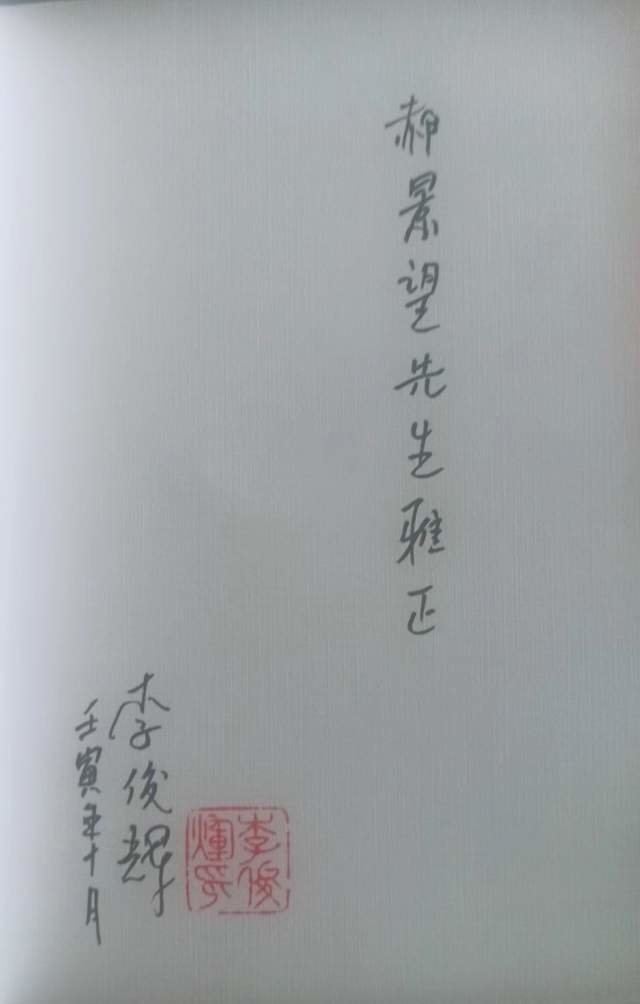 郝景望先生雅正
李俊辉
壬寅年十月
李俊
煇印